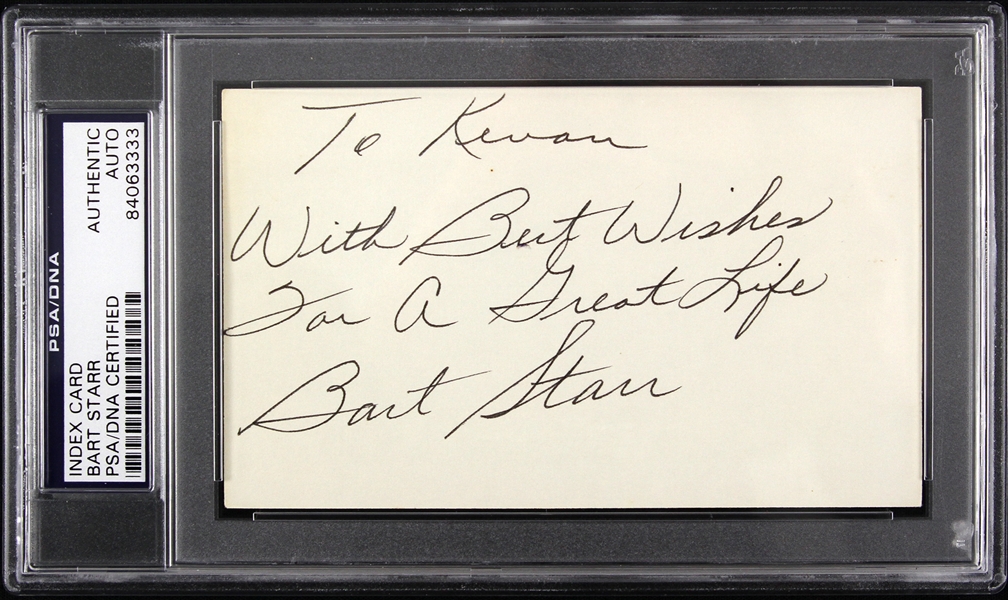 PSA/DNA
INDEX CARD
BART STARR
PSA/DNA CERTIFIED
AUTHENTIC
AUTO
84063333
To Kevan
With Best Wishes
For A Great Life
Bart Starr